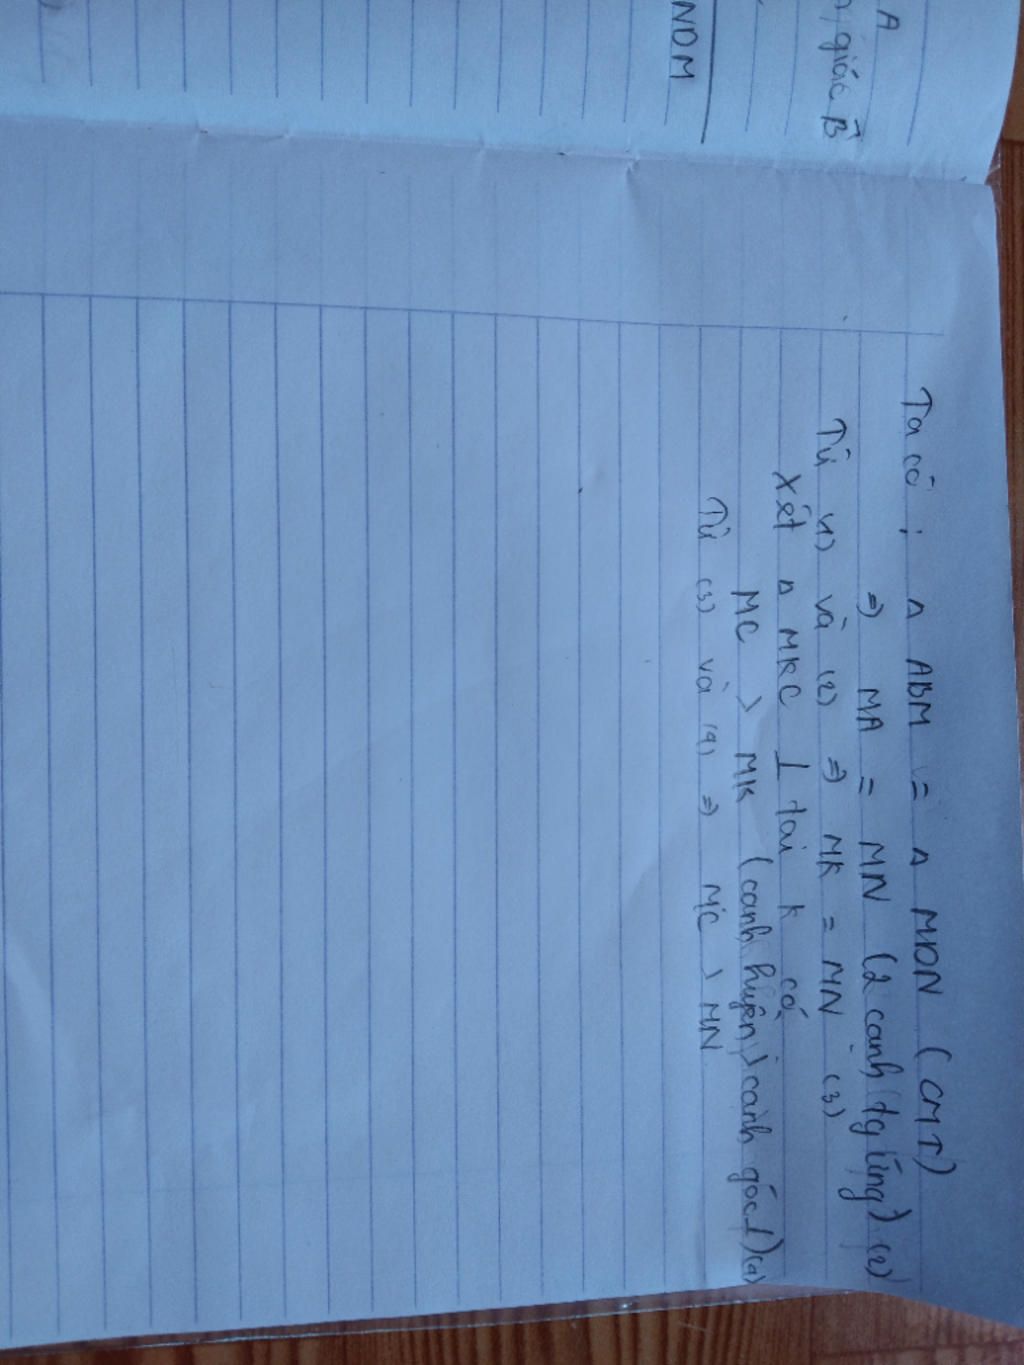 A
giác B
NDM
Ta có : Δ ABM = Δ MDN (CMT)
=> MA = MN (2 cạnh tg ứng) (2)
Từ (1) và (2) => MK = MN (3)
Xét Δ MKC ⊥ tại K có
MC > MK (cạnh huyện > cạnh góc ⊥) (4)
Từ (3) và (4) => MC > MN